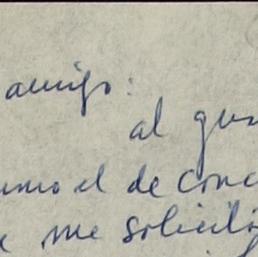 amigo:
al gus
umo el de conc
e me solicitó